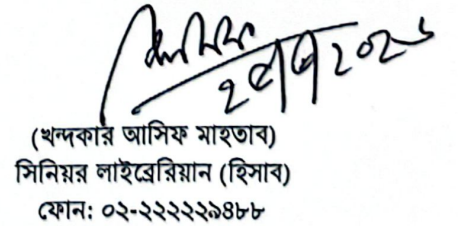 (খন্দকার আসিফ মাহতাব)
সিনিয়র লাইব্রেরিয়ান (হিসাব)
ফোন: ০২-২২২২২৯৪৮৮